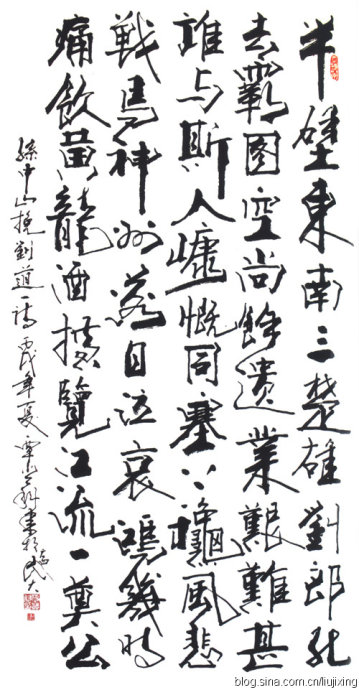 半壁東南三楚雄劉郎死
去覇图空尚餘遺業艱難甚
誰与斯人慷慨同塞上龝風悲
戦馬神州落日泣哀鴻幾時
痛飲黄龍酒橫覽江流一奠公
孫中山挽劉道一詩丙戌年夏覃書於民大
blog.sina.com.cn/liujixing